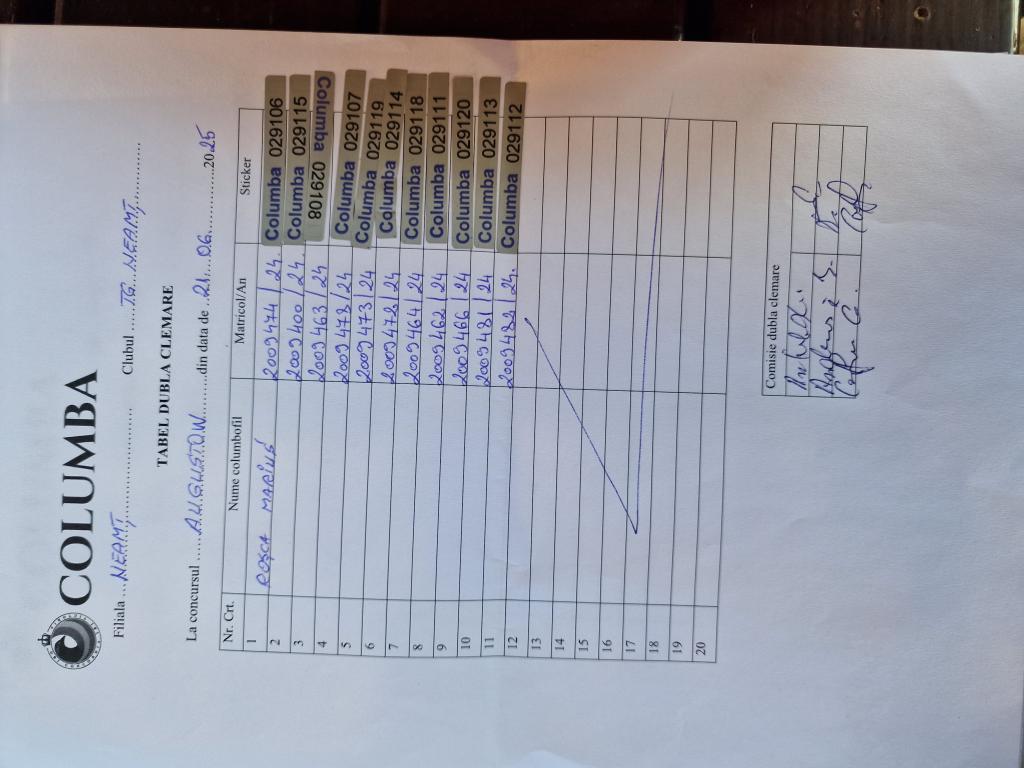 COLUMBA
Filiala ... NEAMȚ ........ Clubul ..... TG. NEAMȚ ........
TABEL DUBLA CLEMARE
La concursul ..... AUGUSTOW ........ din data de .. 21 .. 06 ........ 2025
Nr. Crt. Nume columbofil Matricol/An Sticker
1 ROȘCA MARIUS 2009474/24. Columba 029106
2 2009400/24. Columba 029115
3 2009463/24 Columba 029108
4 2009478/24 Columba 029107
5 2009473/24 Columba 029119
6 2009472/24 Columba 029114
7 2009464/24 Columba 029118
8 2009462/24 Columba 029111
9 2009466/24 Columba 029120
10 2009481/24 Columba 029113
11 2009488/24. Columba 029112
12
13
14
15
16
17
18
19
20
Comisie dubla clemare